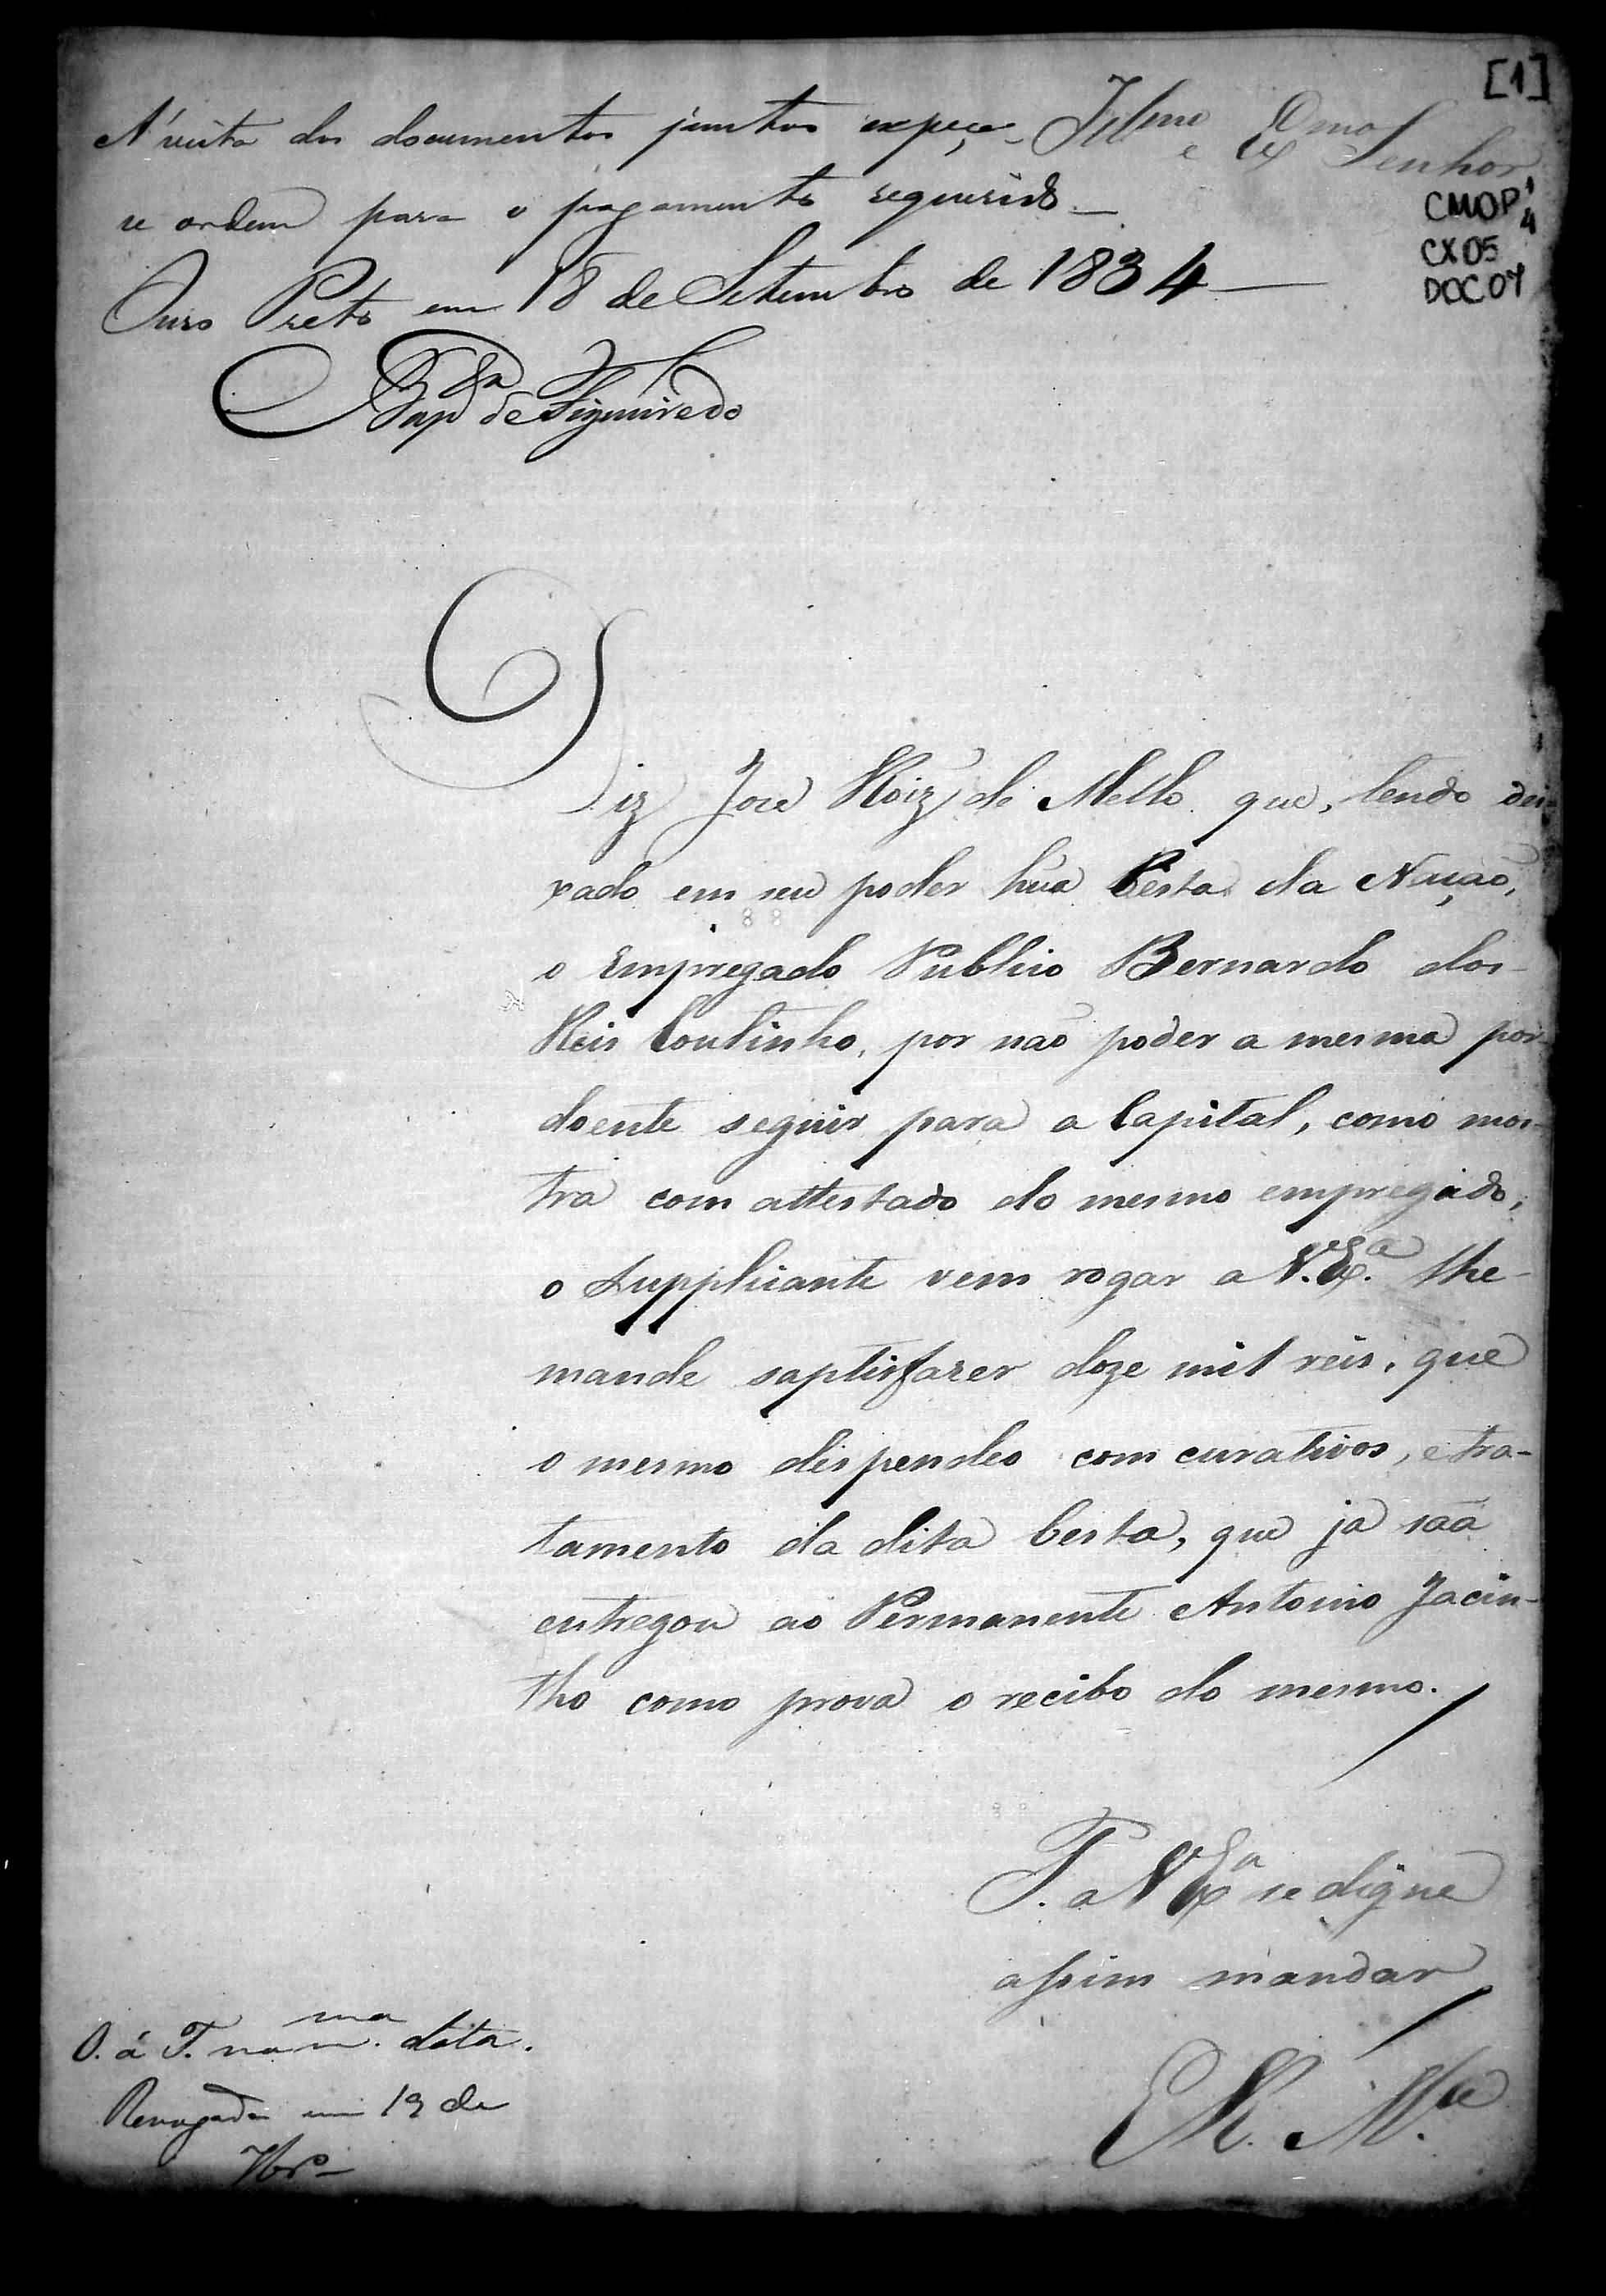 [1]
Illmo e Exmo Senhor
CMOP 1/4
CX 05
DOC 07
A' vista dos documentos juntos expeça-
se ordem para o pagamento requerido_
Ouro Preto em 18 de Setembro de 1834
Bapta de Figueiredo
Diz Jose Roiz' de Mello que, tendo dei-
xado em seu poder hũa besta da Nação,
o Empregado Publico Bernardo dos
Reis Coutinho, por não poder a mesma por
doente seguir para a Capital, como mos-
tra com attestado do mesmo empregado,
o Supplicante vem rogar a V. Exa lhe
mande saptisfazer doze mil reis, que
o mesmo dispendeo com curativos, e tra-
tamento da dita besta, que ja sãa
entregou ao Permanente Antonio Jacin-
tho como prova o recibo do mesmo.
P. a V Exa se digne
assim mandar
E R. Mce
O. á T. na m.ma data.
em 19 de
7bro